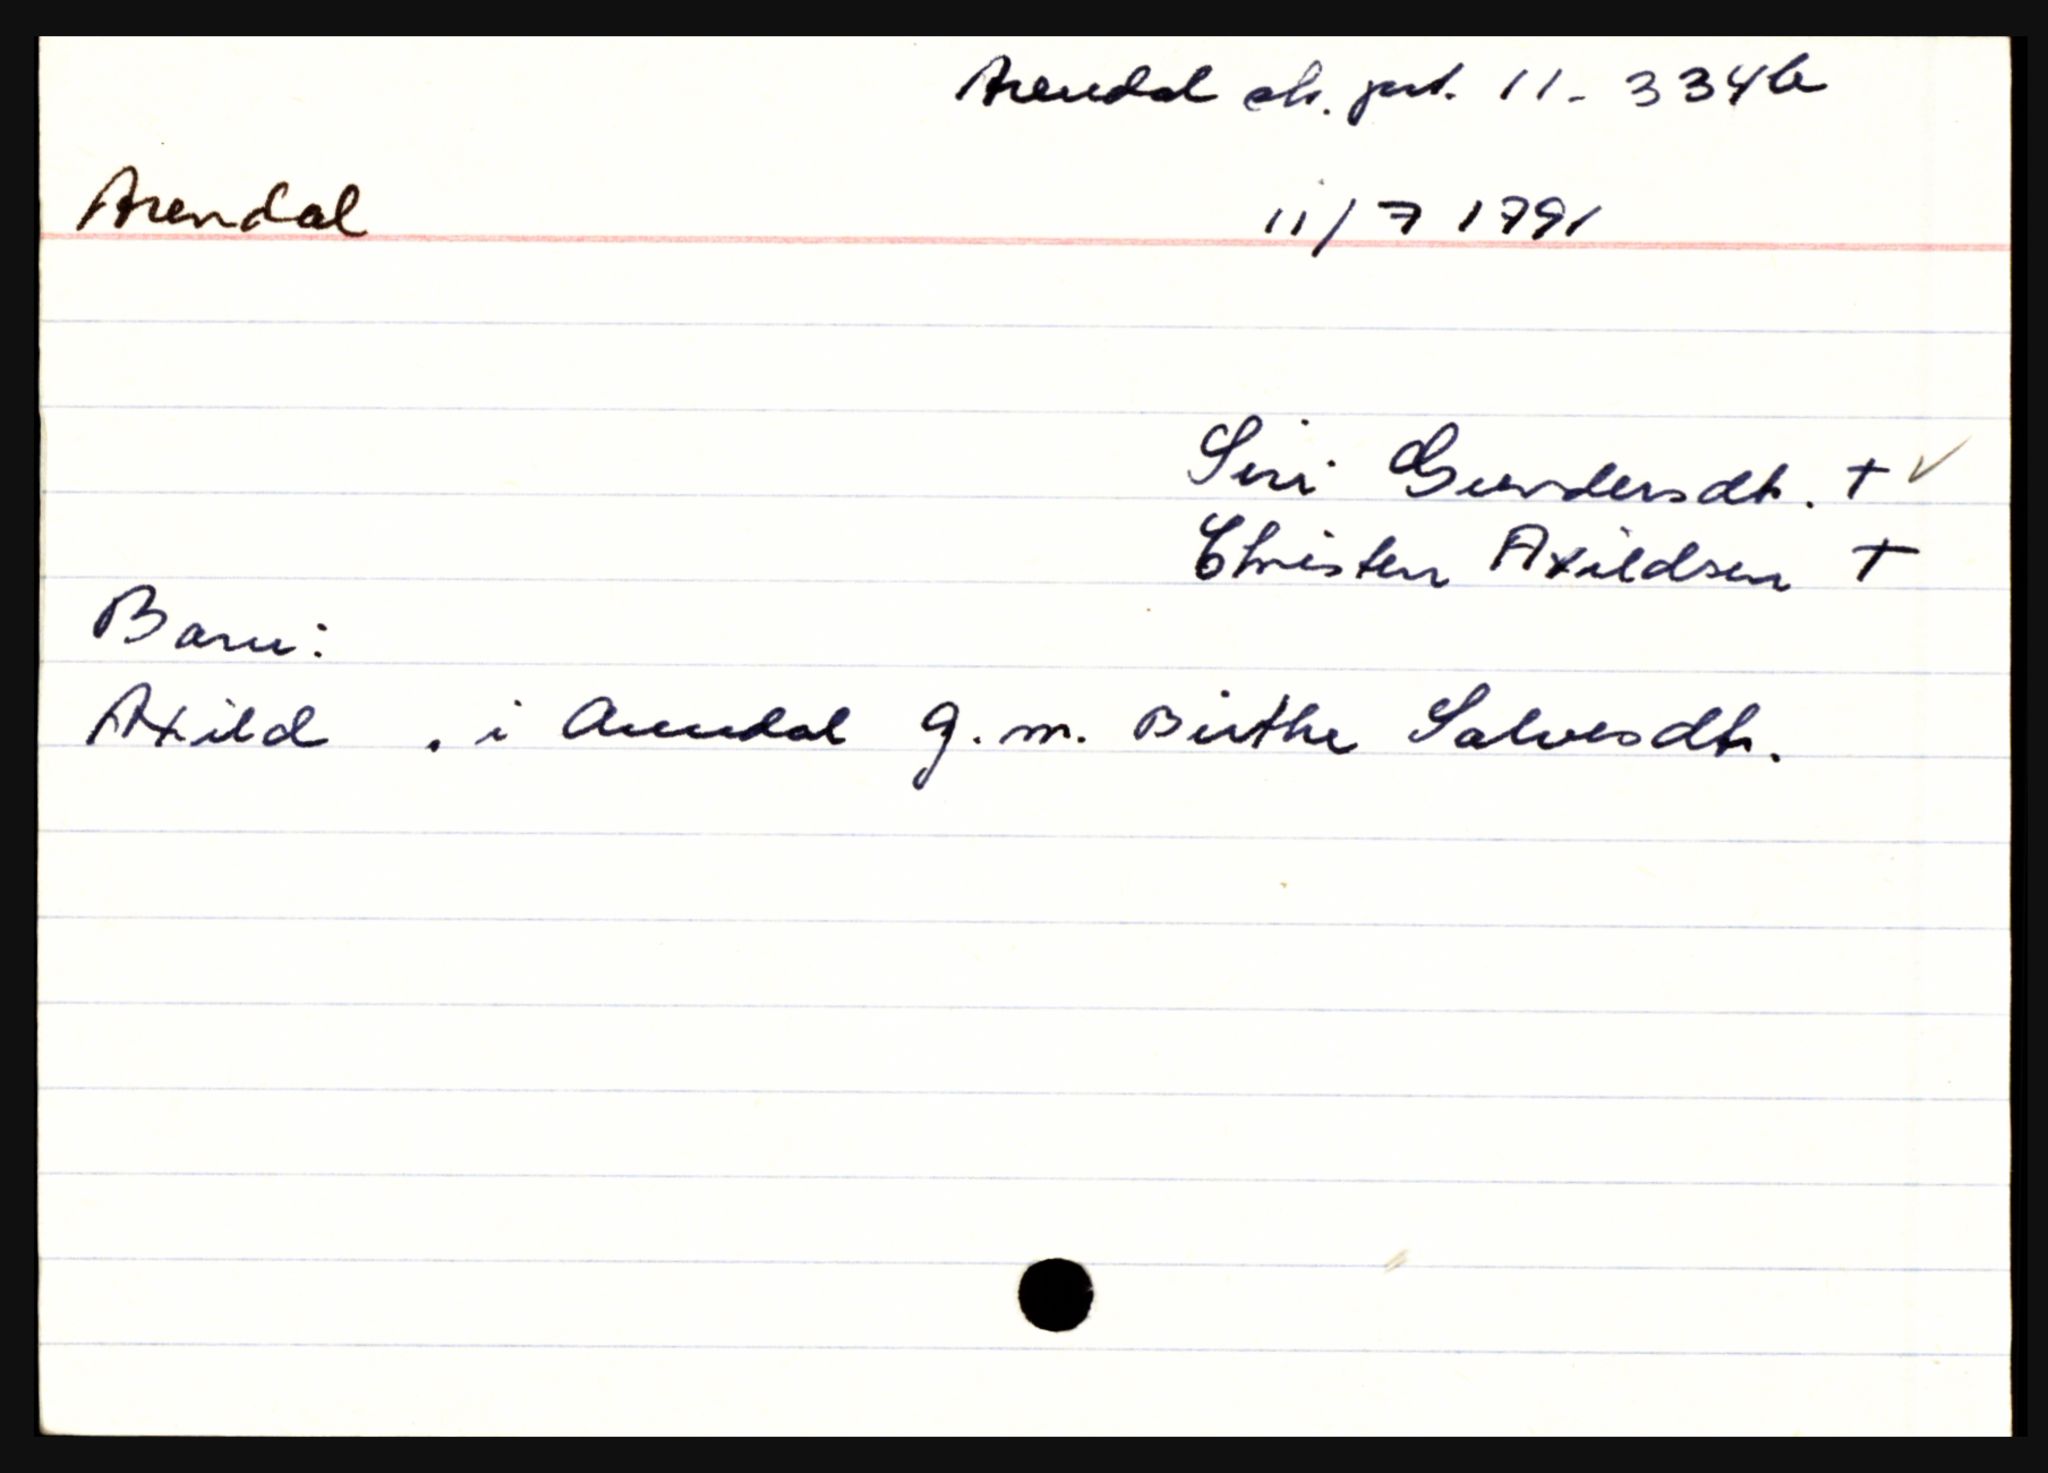 Arendal sk. prt. 11 - 334b
Arendal 11/7 1791
Siri Gundersdtr. + ✓
Christen Axildsen +
Barn:
Axild . i Arendal g. m. Birthe Salvesdtr.